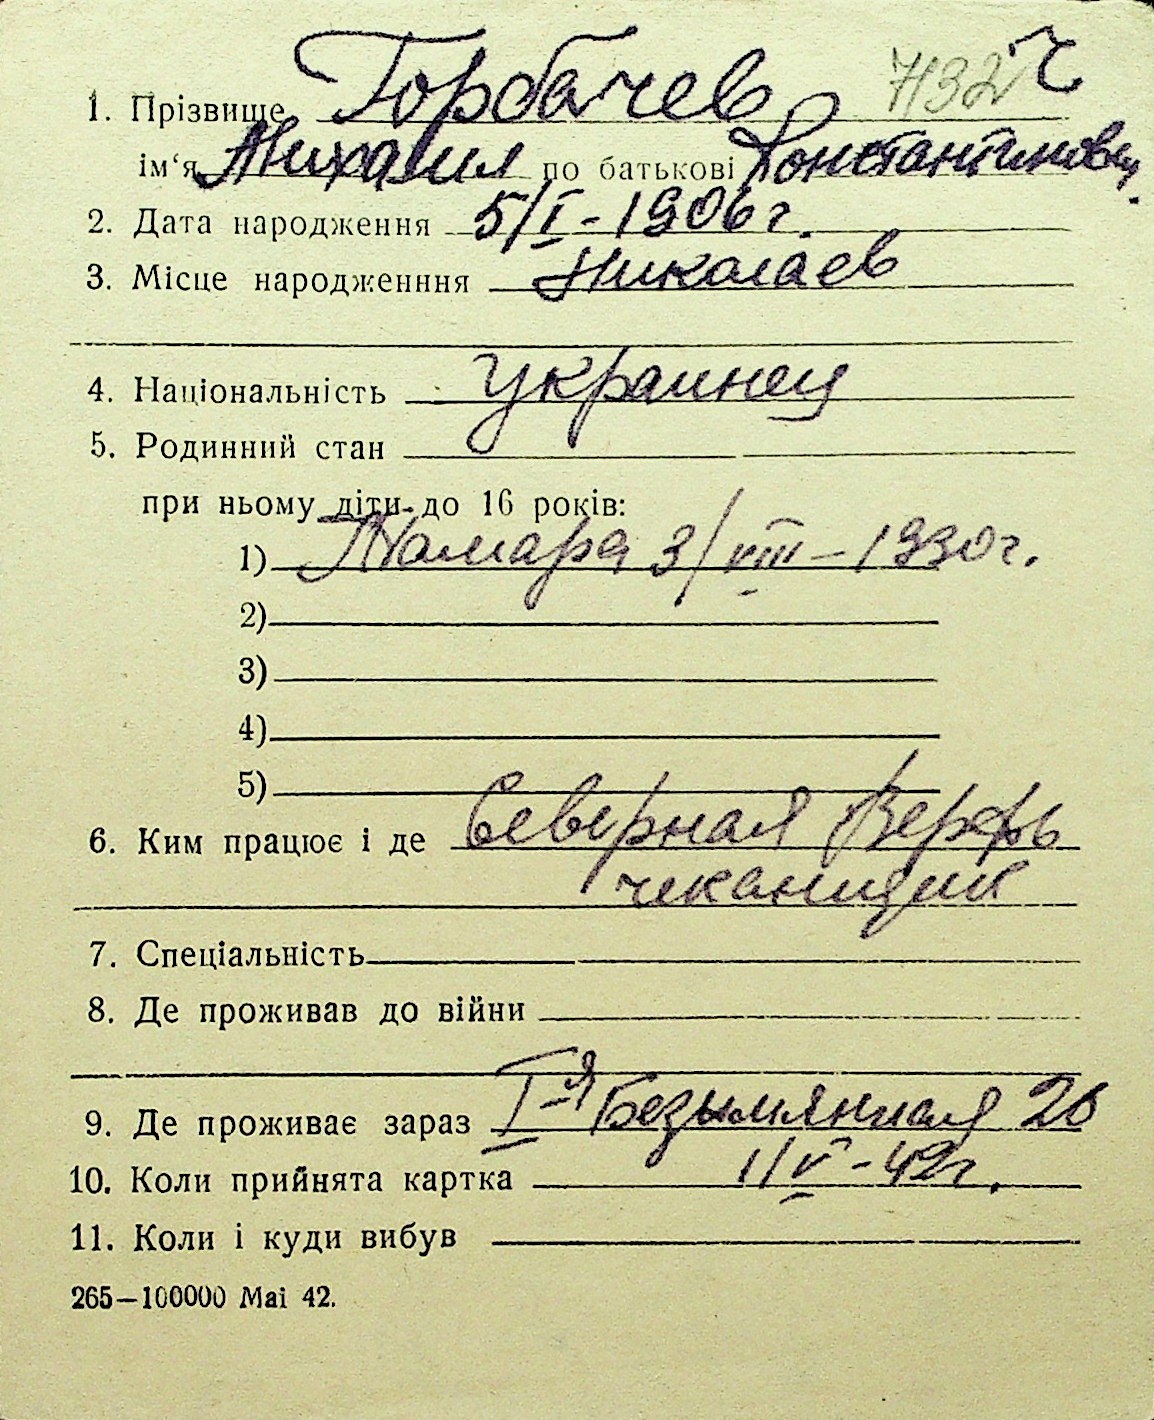 7132 Ч
1. Прізвище Горбачев
ім‘я Михаил по батькові Константинович
2. Дата народження 5/I - 1906 г.
3. Місце народженння Николаев
4. Національність Украинец
5. Родинний стан
при ньому діти до 16 років:
1) Тамара 3/VIII - 1930 г.
2)
3)
4)
5)
6. Ким працює і де Северная Верфь
чеканщик
7. Спеціальність
8. Де проживав до війни
9. Де проживає зараз I-я Безымянная 26
10. Коли прийнята картка 1/V - 42 г.
11. Коли і куди вибув
265—100000 Mai 42.